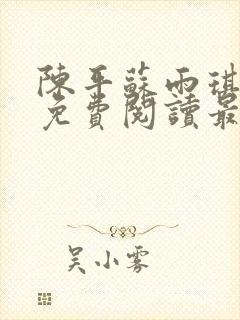 陳平蘇雨琪
免費閱讀最
吴小雾